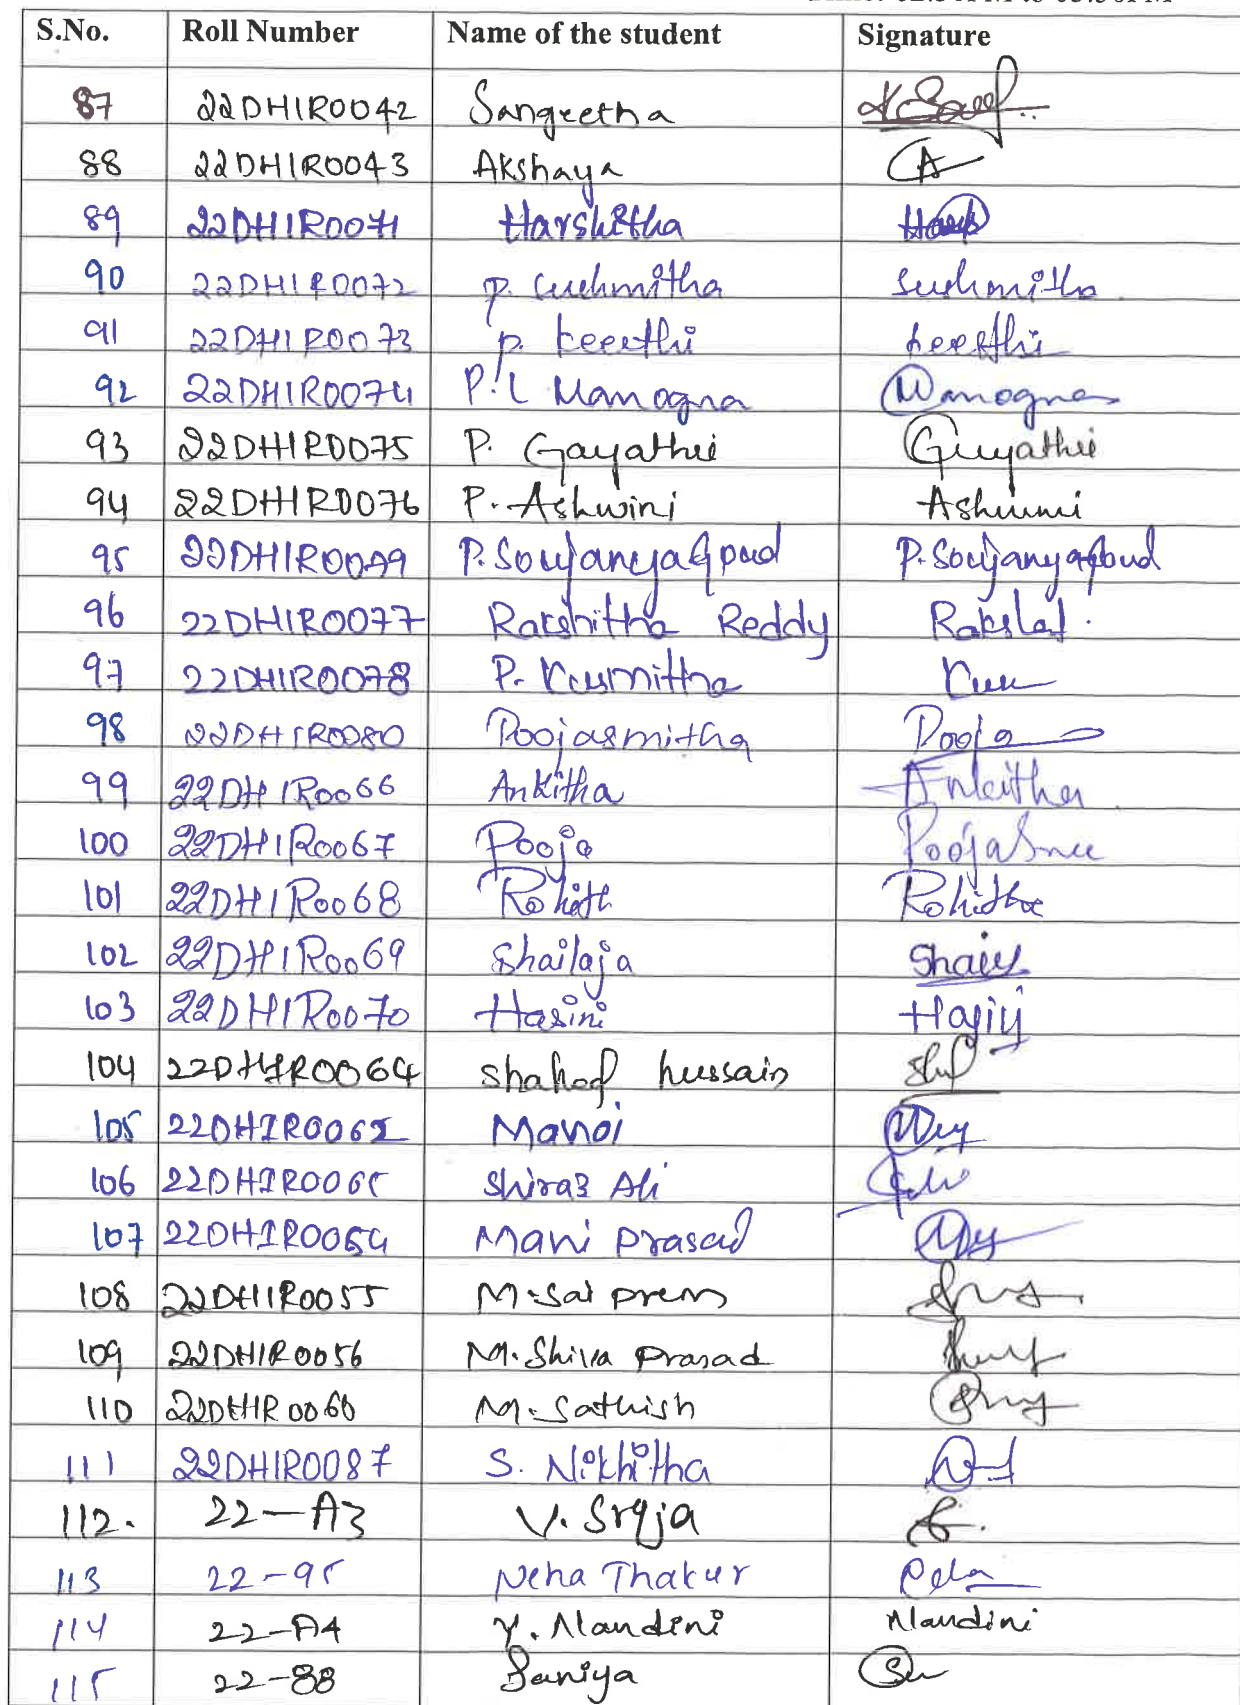 S.No. Roll Number Name of the student Signature
87 22DH1R0042 Sangeetha
88 22DH1R0043 Akshaya A
89 22DH1R0071 Harshitha
90 22DH1R0072 P. Sushmitha Sushmitha
91 22DH1R0073 P. Keerthi Keerthi
92 22DH1R0074 P.L Manogna Manogna
93 22DH1R0075 P. Gayathri Gayathri
94 22DH1R0076 P. Ashwini Ashwini
95 22DH1R0079 P. Soujanya Goud P. Soujanya Goud
96 22DH1R0077 Rakshitha Reddy
97 22DH1R0078 P. Kusmitha
98 22DH1R0080 Poojasmitha Pooja
99 22DH1R0066 Ankitha Ankitha
100 22DH1R0067 Pooja PoojaSree
101 22DH1R0068 Rohith Rohith
102 22DH1R0069 Shailaja
103 22DH1R0070 Hasini
104 22DH1R0064 Shahof hussain
105 Manoj
106 22DH1R0065 Shiraz Ali
107 Mani prasad
108 22DH1R0055 M. Sai prem
109 22DH1R0056 M. Shiva Prasad
110 22DH1R0060 M. Sathish
111 22DH1R0087 S. Nikhitha
112. 22-A3 V. Sreja
113 22-95 Neha Thakur
114 22-A4 Y. Nandini Nandini
115 22-88 Saniya